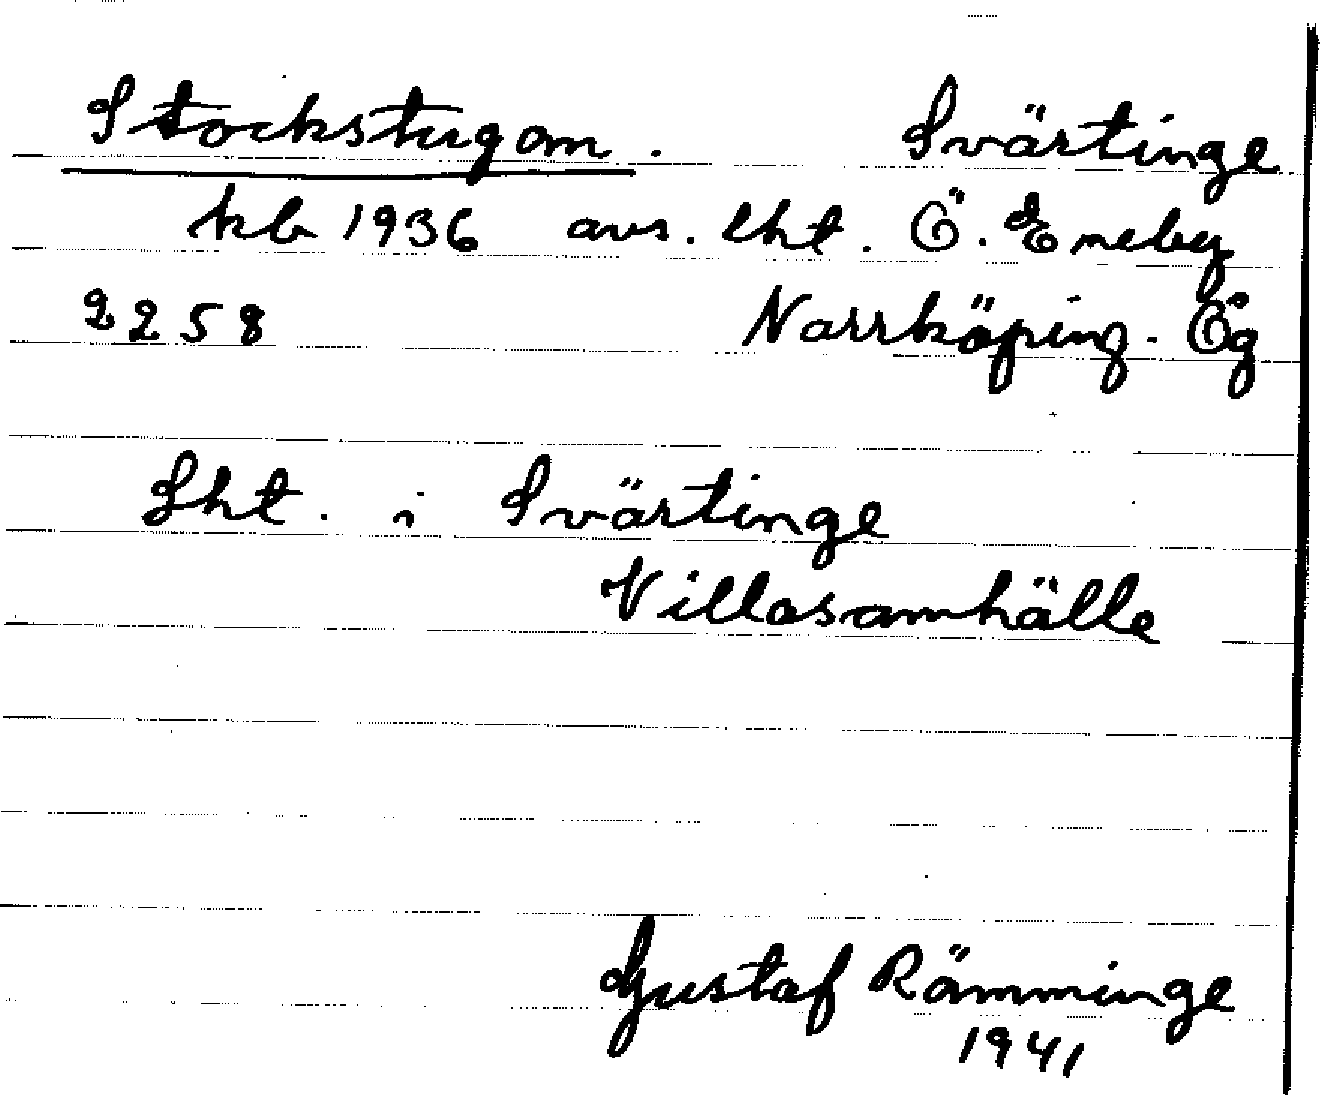 Stockstugan. Svärtinge
kb 1936 avs. lht. Ö. Eneby
2258 Norrköping. Ög
Lht. i Svärtinge
Villasamhälle
Gustaf Rämminge
1941